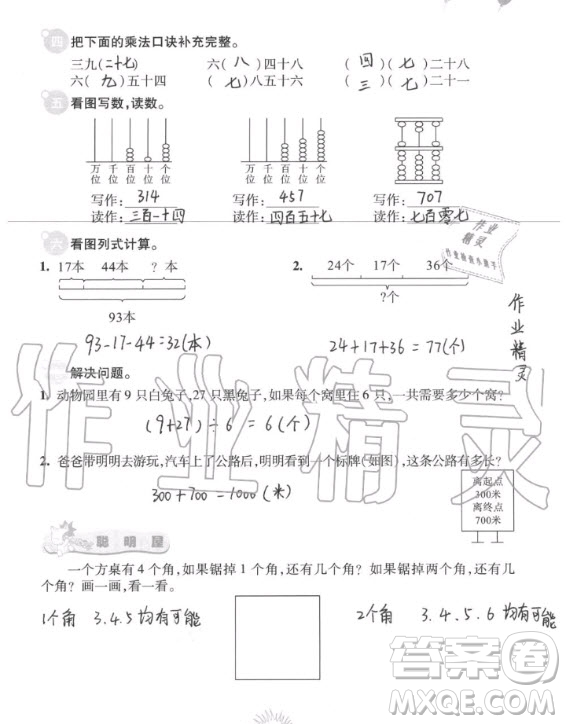 四 把下面的乘法口诀补充完整。
三九(二十七) 六(八)四十八 (四)(七)二十八
六(九)五十四 (七)八五十六 (三)(七)二十一
五 看图写数,读数。
万位 千位 百位 十位 个位 万位 千位 百位 十位 个位 百位 十位 个位
写作: 314 写作: 457 写作: 707
读作: 三百一十四 读作: 四百五十七 读作: 七百零七
作业精灵
六 看图列式计算。
1. 17本 44本 ? 本 2. 24个 17个 36个
93本 ?个
93-17-44=32(本) 24+17+36=77(个)
作业精灵
解决问题。
1. 动物园里有 9 只白兔子,27 只黑兔子,如果每个窝里住 6 只,一共需要多少个窝?
(9+27)÷6=6(个)
2. 爸爸带明明去游玩,汽车上了公路后,明明看到一个标牌(如图),这条公路有多长?
300+700=1000(米)
离起点
300米
离终点
700米
作业精灵
聪明屋
一个方桌有 4 个角,如果锯掉 1 个角,还有几个角?如果锯掉两个角,还有几
个角?画一画,看一看。
1个角 3.4.5均有可能 2个角 3.4.5.6均有可能
答案圈
MXQE.COM